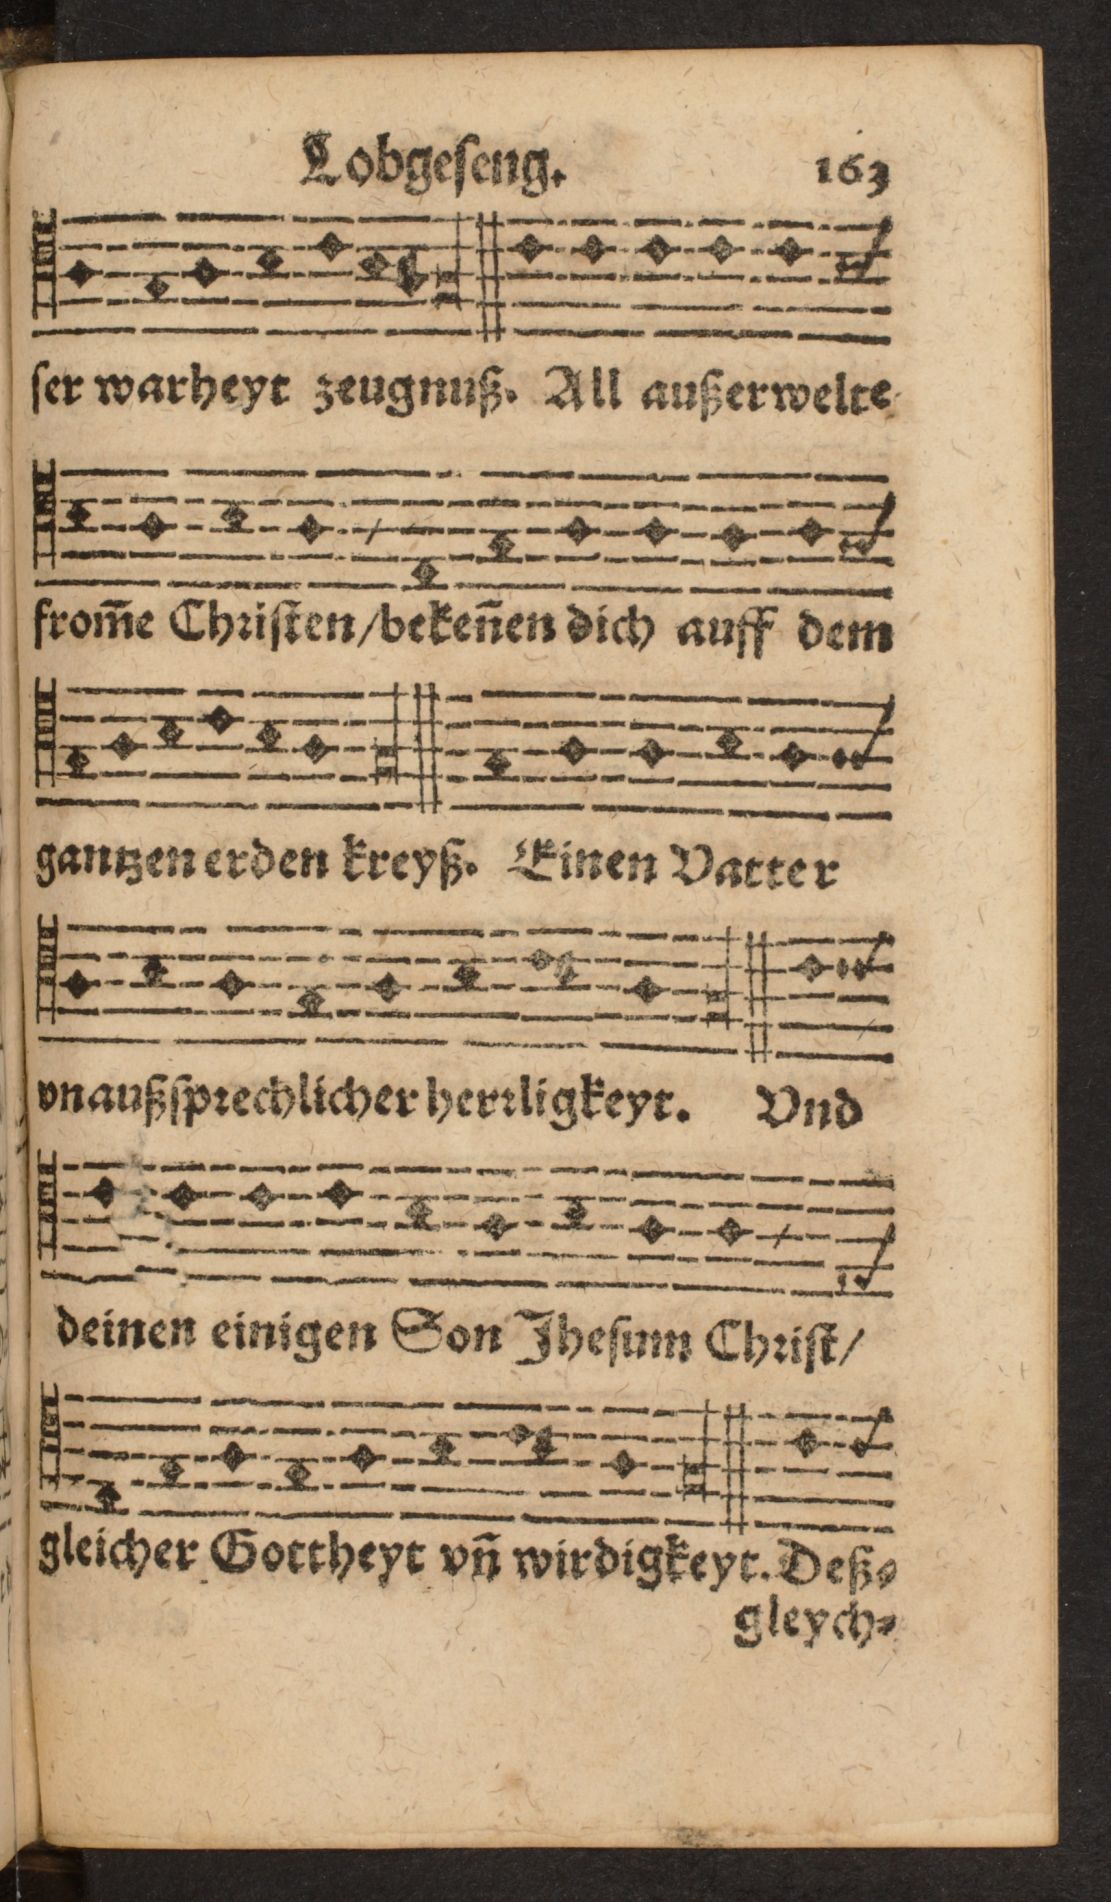 Lobgeseng. 163
ſer warheyt zeugnuß. All außerwelte
from̃e Chriſten/bekeñen dich auff dem
gantzen erden kreyß. Einen Vatter
vnaußſprechlicher herrligkeyt. Vnd
deinen einigen Son Jheſum Chriſt/
gleicher Gottheyt vñ wirdigkeyt. Deß⸗
gleych⸗